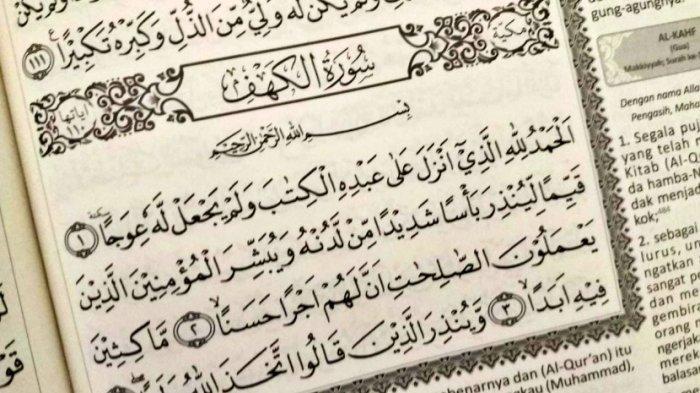 وَلِيٌّ مِّنَ الذُّلِّ وَكَبِّرْهُ تَكْبِيْرًا ۝١١١
مكية
سُوْرَةُ الْكَهْفِ
اياتها ١١٠
بِسْمِ اللّٰهِ الرَّحْمٰنِ الرَّحِيْمِ
اَلْحَمْدُ لِلّٰهِ الَّذِيْٓ اَنْزَلَ عَلٰى عَبْدِهِ الْكِتٰبَ وَلَمْ يَجْعَلْ لَّهٗ عِوَجًا ۜ ۝١
قَيِّمًا لِّيُنْذِرَ بَأْسًا شَدِيْدًا مِّنْ لَّدُنْهُ وَيُبَشِّرَ الْمُؤْمِنِيْنَ الَّذِيْنَ
يَعْمَلُوْنَ الصّٰلِحٰتِ اَنَّ لَهُمْ اَجْرًا حَسَنًاۙ ۝٢ مَّاكِثِيْنَ
فِيْهِ اَبَدًاۙ ۝٣ وَّيُنْذِرَ الَّذِيْنَ قَالُوا اتَّخَذَ اللّٰهُ
gung-agungnya.
AL-KAHF
(Gua)
Makkiyyah; Surah ke-
Dengan nama Alla
Pengasih, Maha
1. Segala puj
yang telah m
Kitab (Al-Q
da hamba-N
dak menjad
kok;
2. sebagai
lurus, u
ngatkan
sangat p
dan me
gembira
orang
ngerjak
mereka
balasan
benarnya dan (Al-Qur'an) itu
gkau (Muhammad),